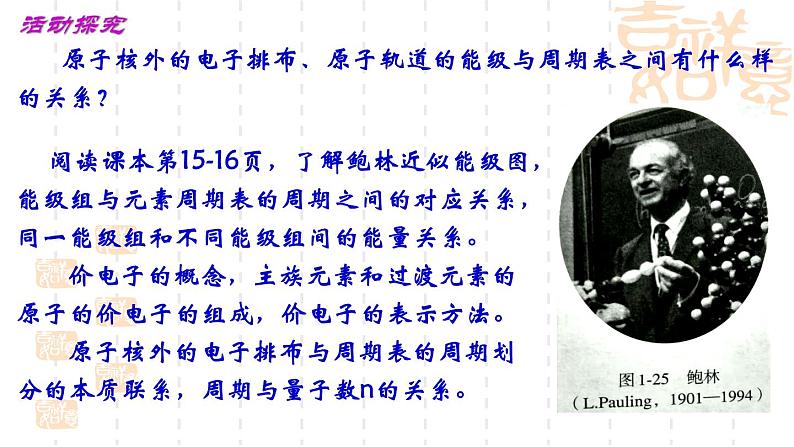 活动探究
原子核外的电子排布、原子轨道的能级与周期表之间有什么样
的关系？
阅读课本第15-16页，了解鲍林近似能级图，
能级组与元素周期表的周期之间的对应关系，
同一能级组和不同能级组间的能量关系。
价电子的概念，主族元素和过渡元素的
原子的价电子的组成，价电子的表示方法。
原子核外的电子排布与周期表的周期划
分的本质联系，周期与量子数n的关系。
图1-25 鲍林
（L.Pauling，1901—1994）